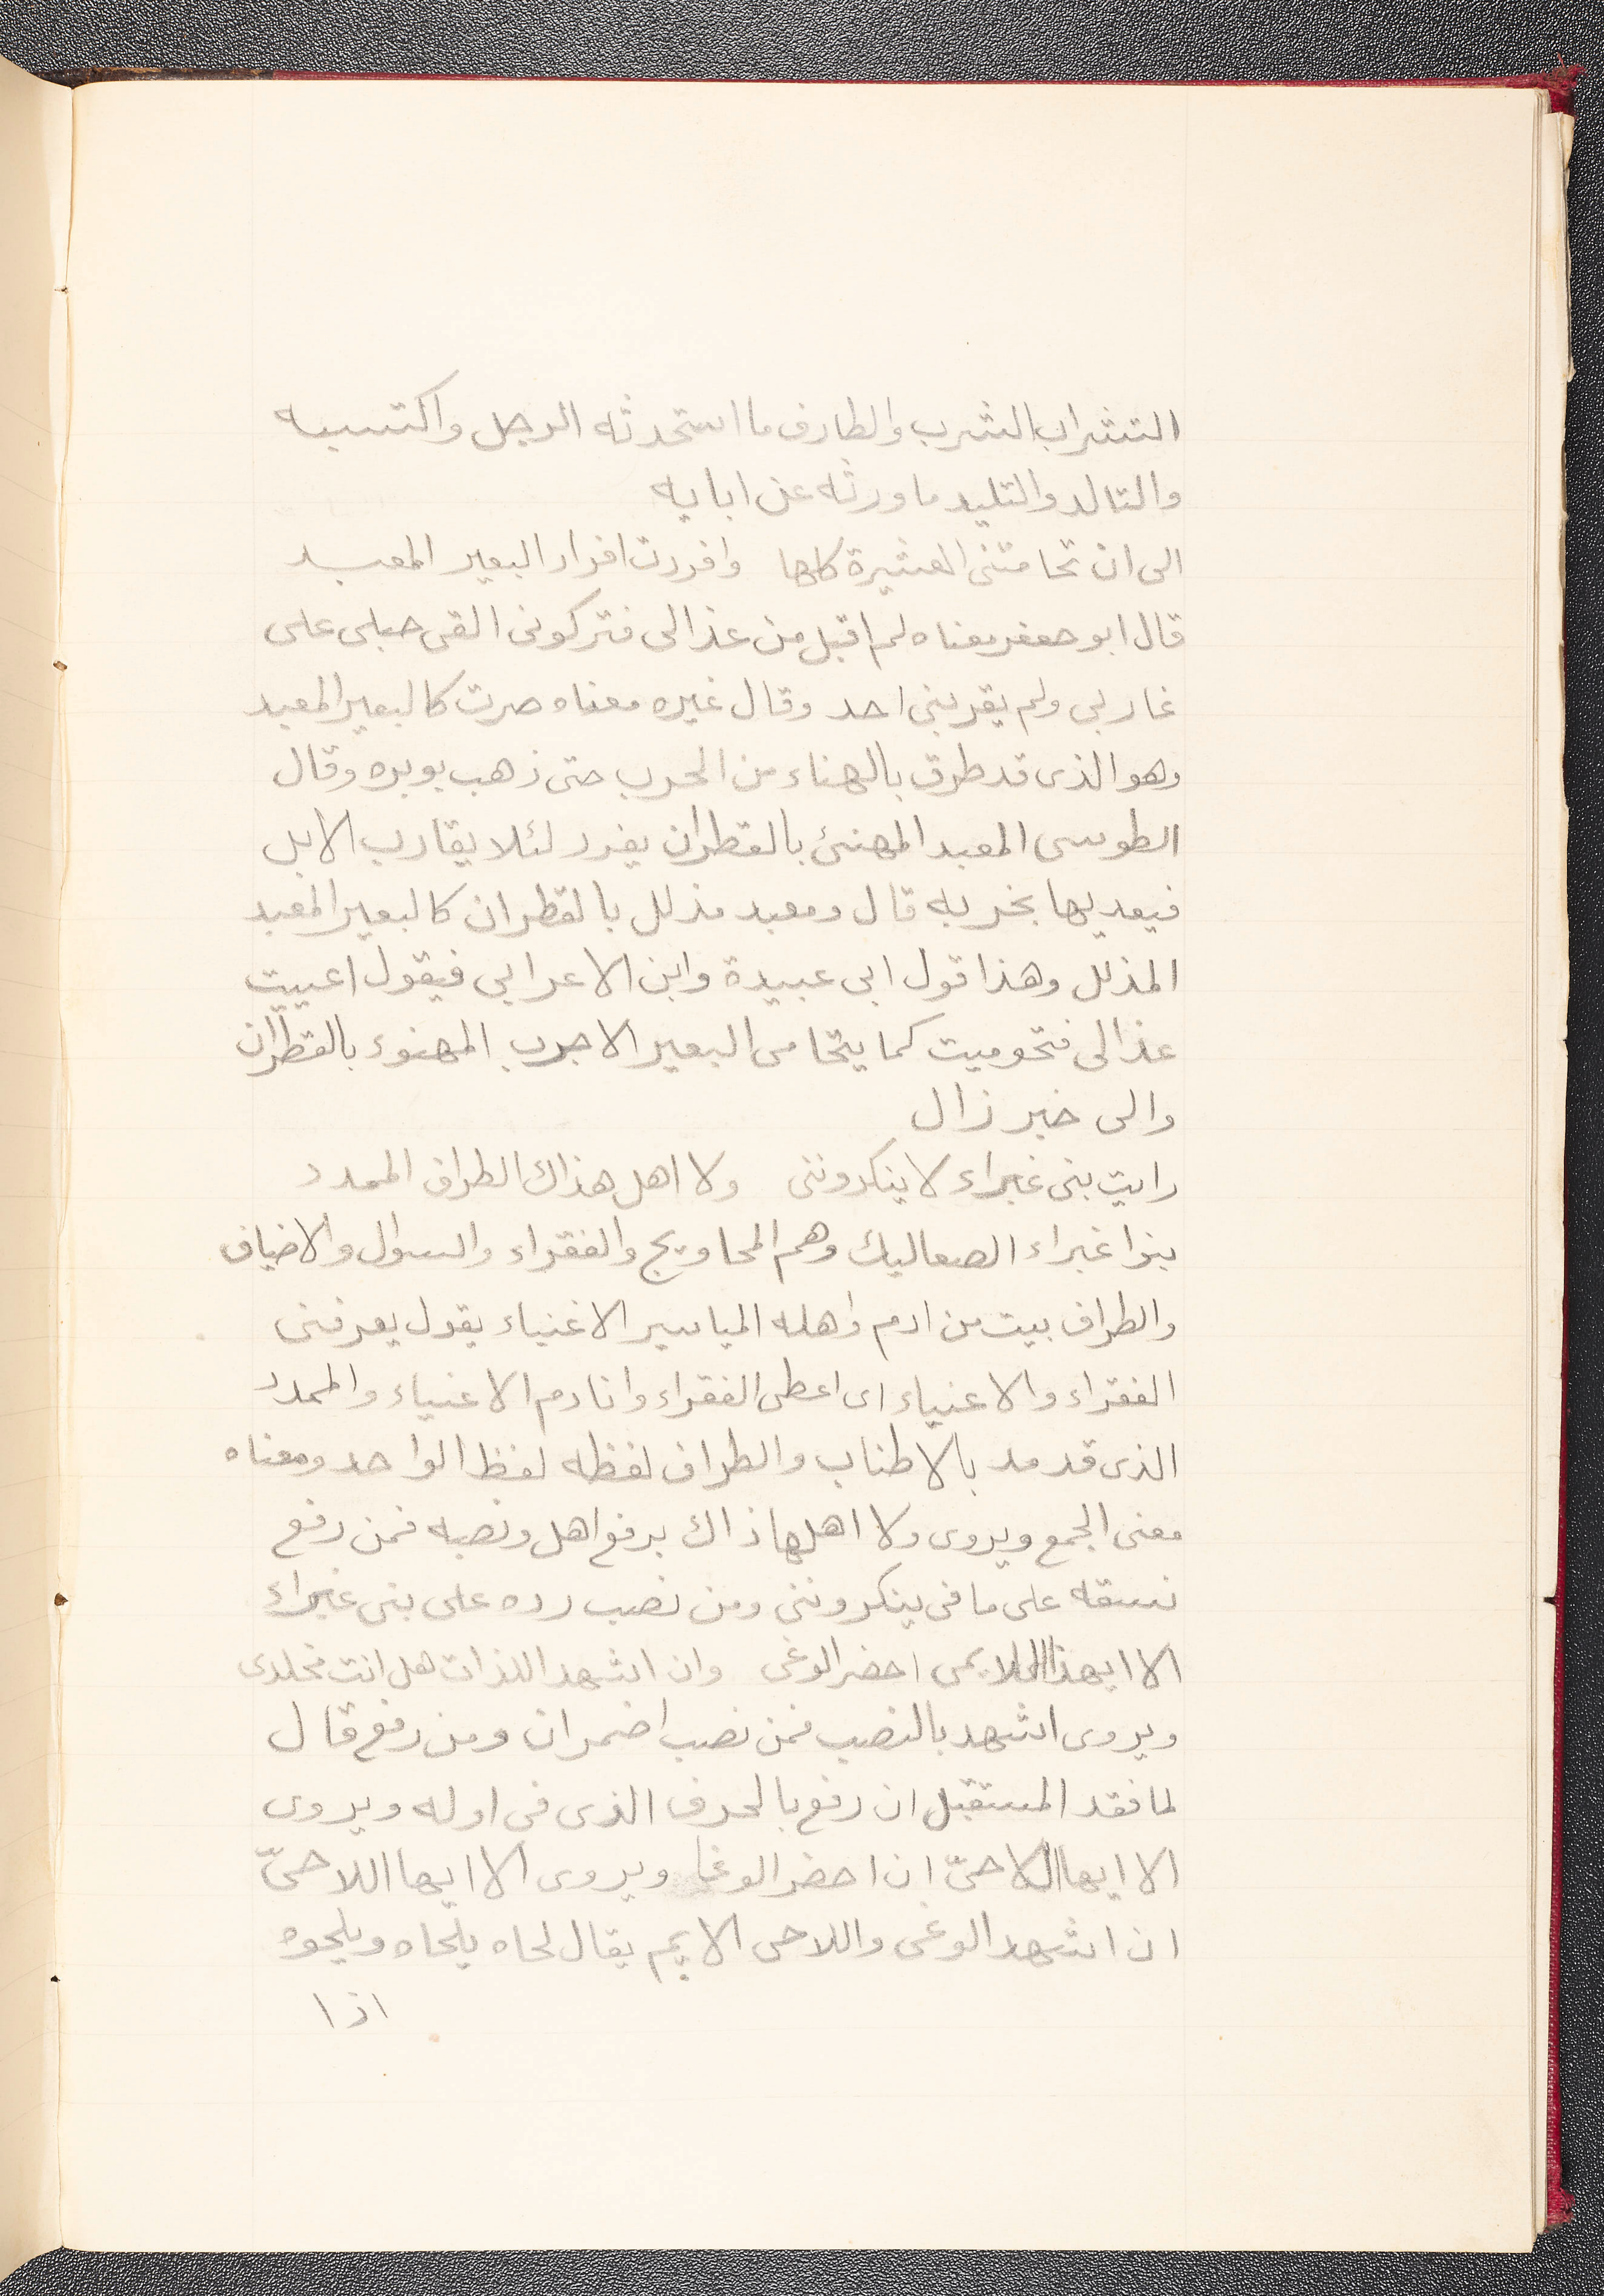 التشراب الشرب والطارف ما استحدثه الرجل واكتسبه
والتالد والتليد ما ورثه عن ابايه
الى ان تحامتنى العشيرة كلها وافردت افراد البعير المعبد
قال ابو جعفر معناه لم اقبل من عذالى فتركونى القى حبلى على
غاربى ولم يقربنى احد وقال غيره معناه صرت كالبعير المعبد
وهو الذى قد طرق بالهناء من الجرب حتى ذهب بوبره وقال
الطوسى المعبد المهنئ بالقطران يفرد لئلا يقارب الابل
فيعديها بخربه قال ومعبد مذلل بالقطران كالبعير المعبد
المذلل وهذا قول ابى عبيدة وابن الاعرابى فيقول اعييت
عذالى فتحوميت كما يتحامى البعير الاجرب المهنوء بالقطران
والى خير زال
رايت بنى غبراء لا ينكروننى ولا اهل هذاك الطراف الممدد
بنوا غبراء الصعاليك وهم المحاويج والفقراء والسوال والاضياف
والطراف بيت من ادم واهله المياسير الاغنياء يقول يعرفنى
الفقراء والاغنياء اى اعطى الفقراء وانادم الاغنياء والممدد
الذى قد مد بالاطناب والطراف لفظه لفظ الواحد ومعناه
معنى الجمع ويروى ولا اهلها ذاك برفع اهل ونصبه فمن رفع
نسقه على ما فى ينكروننى ومن نصب رده على بنى غبراء
الا ايهذا اللايمى احضر الوغى وان اشهد اللذات هل انت مخلدى
ويروى اشهد بالنصب فمن نصب اضمر ان ومن رفع قال
لما فقد المستقبل ان رفع بالحرف الذى فى اوله ويروى
الا ايها اللاحىّ ان احضر الوغا ويروى الا ايها اللاحىّ
ان اشهد الوغى واللاحى الايم يقال لحاه يلحاه ويلحوه
اذا